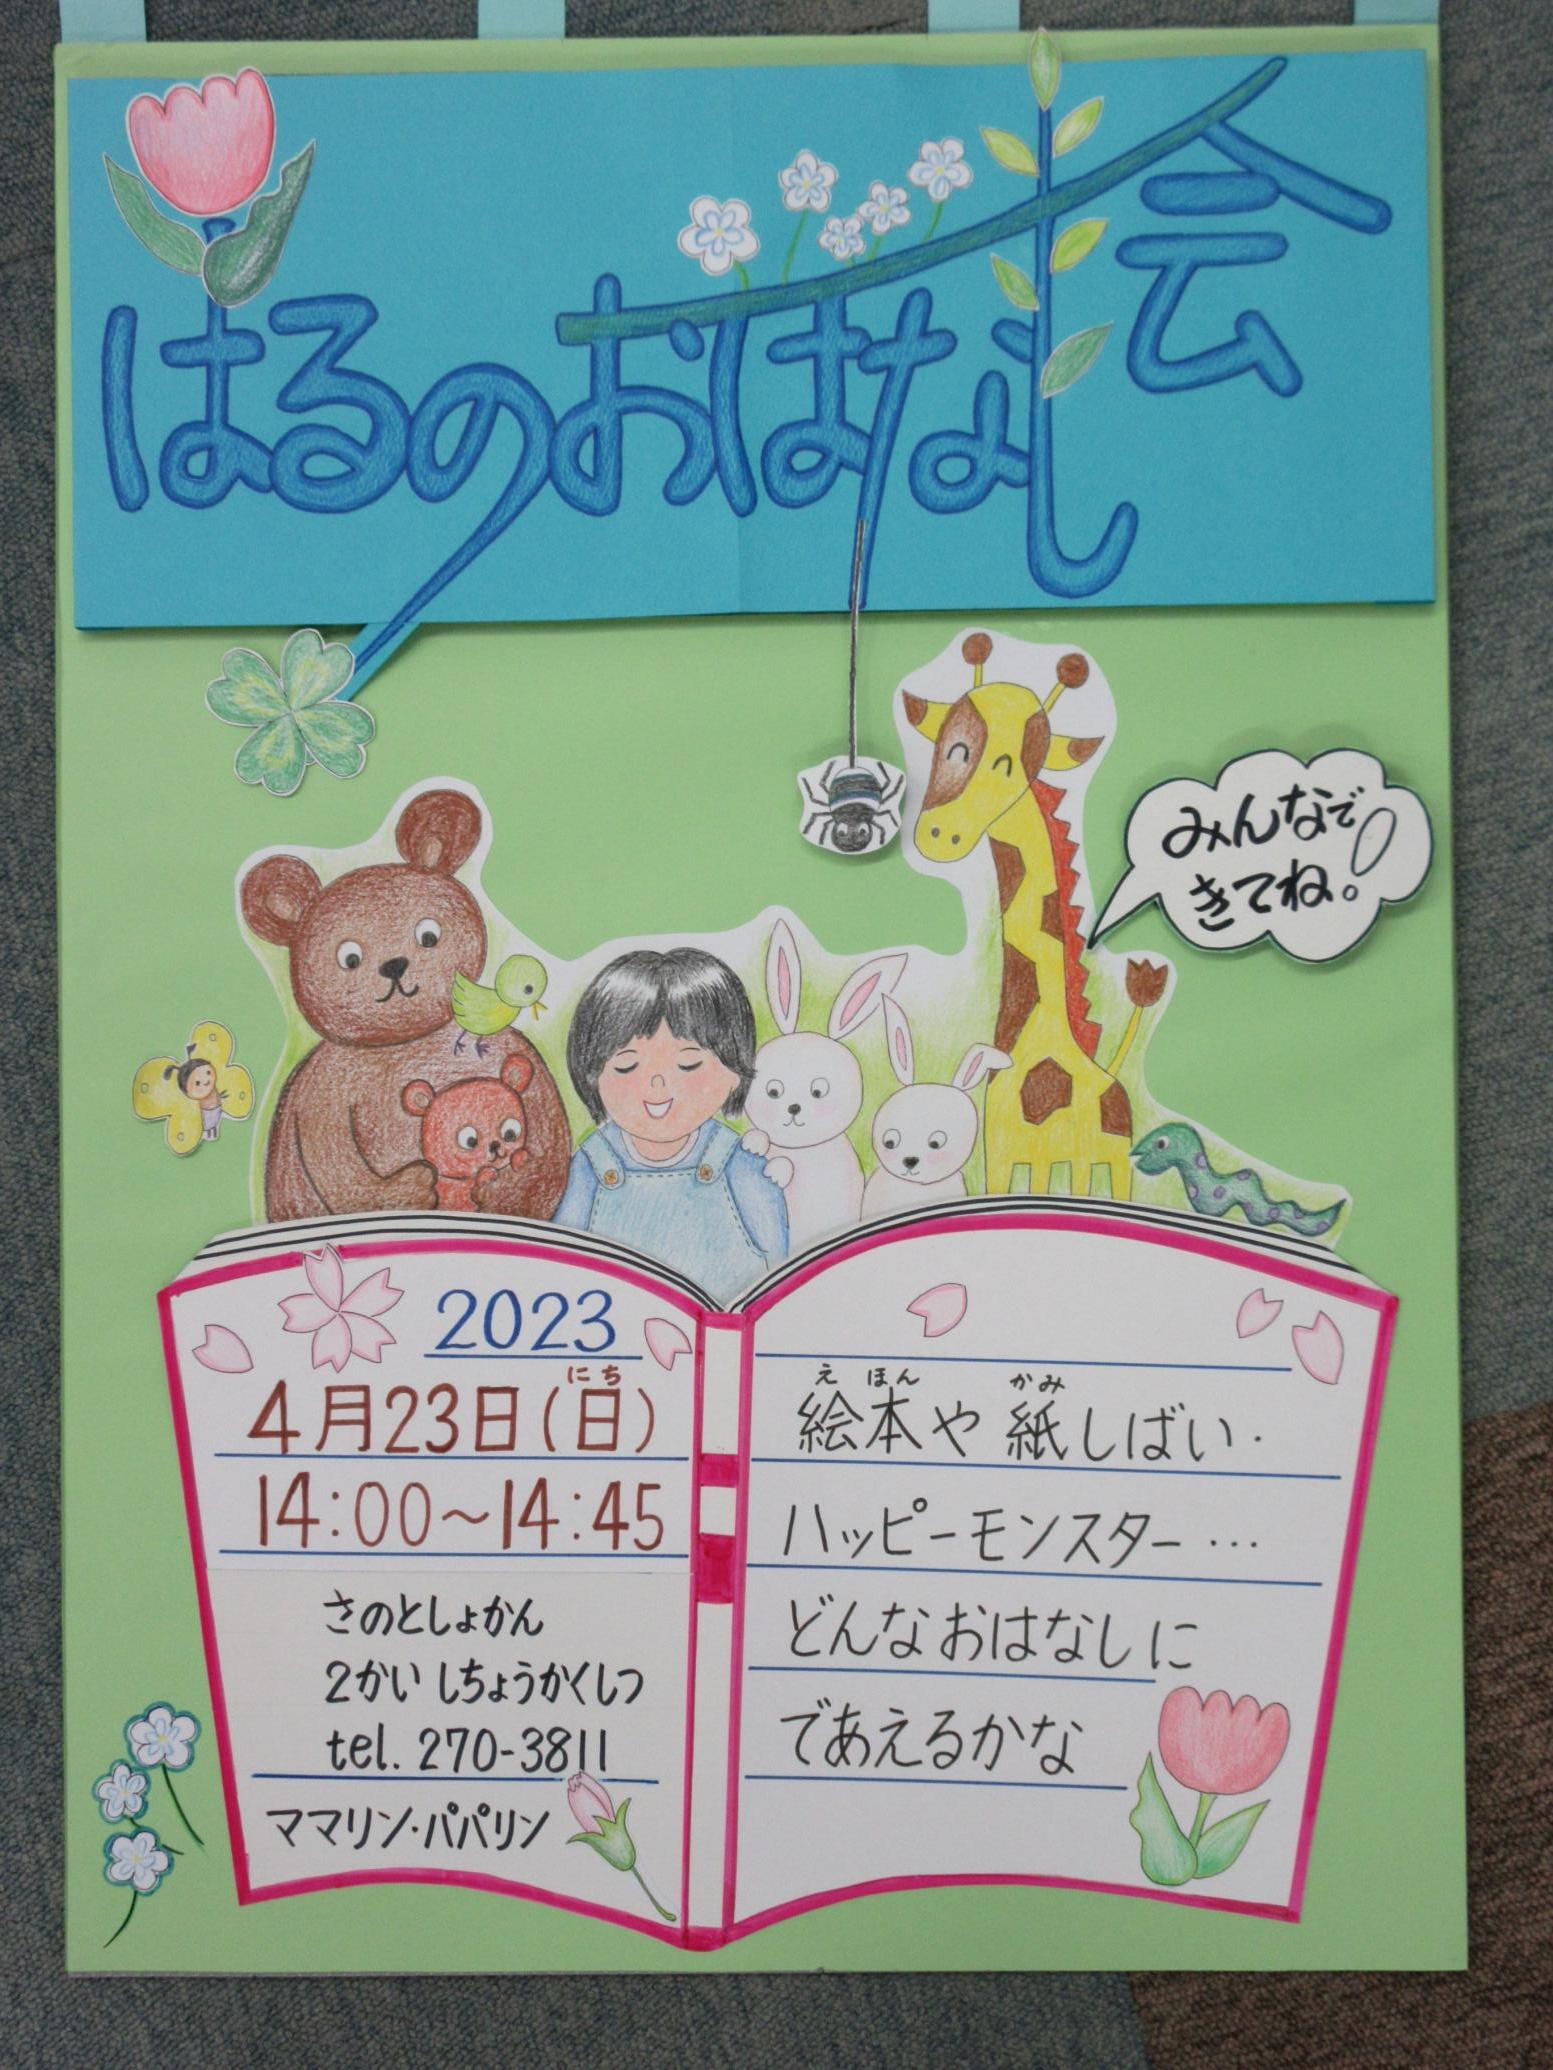 はるのおはなし会
みんなで
きてね。!
2023
4月23日(日)
にち
14:00〜14:45
さのとしょかん
2かい しちょうかくしつ
tel. 270-3811
ママリン・パパリン
え ほん かみ
絵本や紙しばい・
ハッピーモンスター…
どんなおはなしに
であえるかな